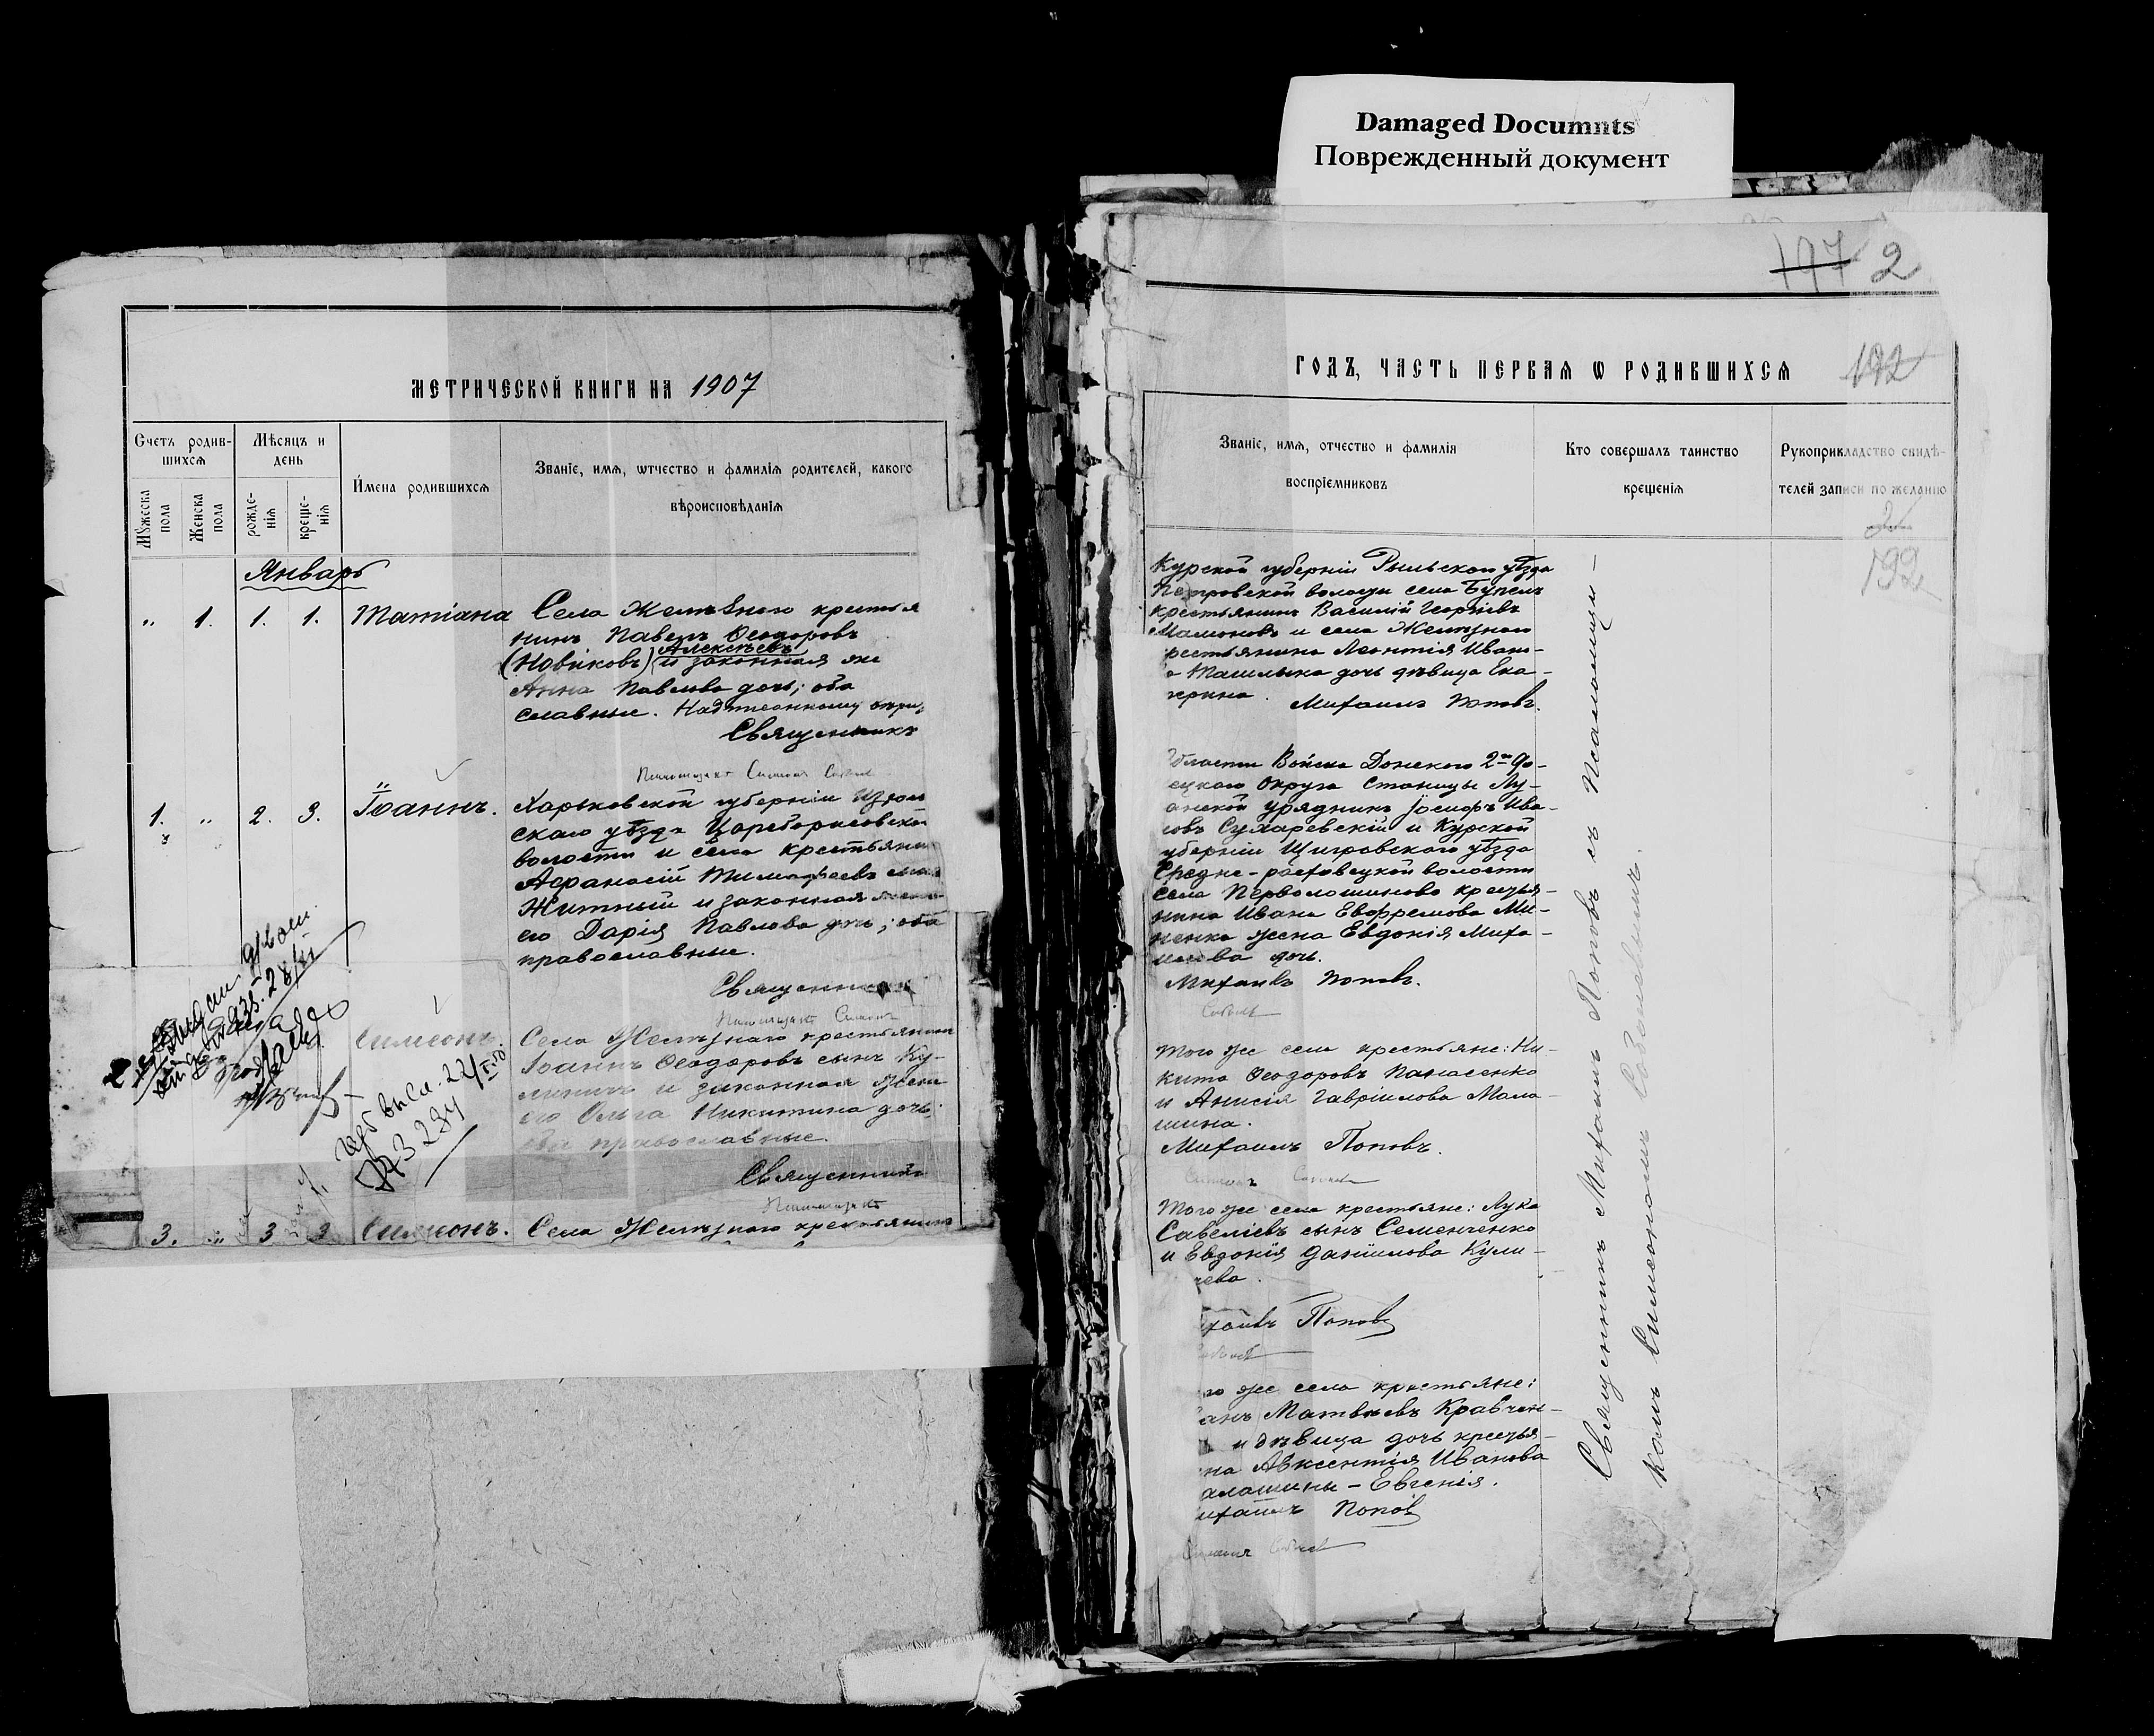 Damaged Documnts
Поврежденный документ
197 2
МЕТРИЧЕСКОЙ КНИГИ НА 1907
Счетъ родив-
шихся
Мужеска пола
Женска пола
Мѣсяцъ и день
рожде-
нія
креще-
нія
Имена родившихся
Званіе, имя, ѿтчество и фамилія родителей, какого
вѣроисповѣданія
Январь
„ 1. 1. 1. Татіана
Села Желѣзного крестья
нинъ Павелъ Ѳеодоровъ
Алексѣевъ
(Новиковъ) и законная же
Анна Павлова дочь; оба
славные.
Священникъ
1. „ 2. 3. Іоаннъ.
Харьковской губерніи Изюм
скаго уѣзда Цареборисовско
волости и села крестьянин
Аѳанасій Тимоѳеевъ
Житный и законная жена
его Дарія Павлова дочь; оба
православные.
Священник
Симеонъ.
Села Желѣзнаго крестьянин
Іоаннъ Ѳеодоровъ сынъ Ку-
личъ и законная жена
его Ольга Никитина дочь;
оба православные.
Священникъ
3. „ 3 3 Симеонъ.
Села Желѣзнаго крестьянинъ
ГОДЪ, ЧАСТЬ ПЕРВАЯ Ѡ РОДИВШИХСЯ
192
Званіе, имя, отчество и фамилія
воспріемниковъ
Кто совершалъ таинство
крещенія
Рукоприкладство свидѣ-
телей записи по желанію
2
192
Курской губерніи Рыльскаго уѣзда
Петровской волости села
крестьянинъ Василій Георгіевъ
Мамоновъ и села Желѣзнаго
рестьянина Леонтія Ивано-
дочь дѣвица Ека-
терина. Михаилъ Поповъ.
бласти Войска Донского 2го До-
ецкаго Округа Станицы Лу-
анской урядникъ Іосифъ Ива-
новъ Сухаревскій и Курской
губерніи Щигровскаго уѣзда
Средне-расховецкой волости
села Перволошиново крестья-
нина Ивана Евфремова Ми-
ненко жена Евдокія Миха-
илова дочь.
Михаилъ Поповъ.
Того же села крестьяне: Ни-
кита Ѳеодоровъ Панасенко
и Анисія Гавріилова Мала-
шина.
Михаилъ Поповъ.
Того же села крестьяне: Лука
Савеліевъ сынъ Семенченко
и Евдокія Даніилова Кули-
чева.
ихаилъ Поповъ
го же села крестьяне:
анъ Матвѣевъ Кравчен-
и дѣвица дочь крестья-
на Авксентія Иванова
алашины – Евгенія.
ихаилъ Поповъ
Священникъ Михаилъ Поповъ съ Псаломщи-
комъ Симеономъ